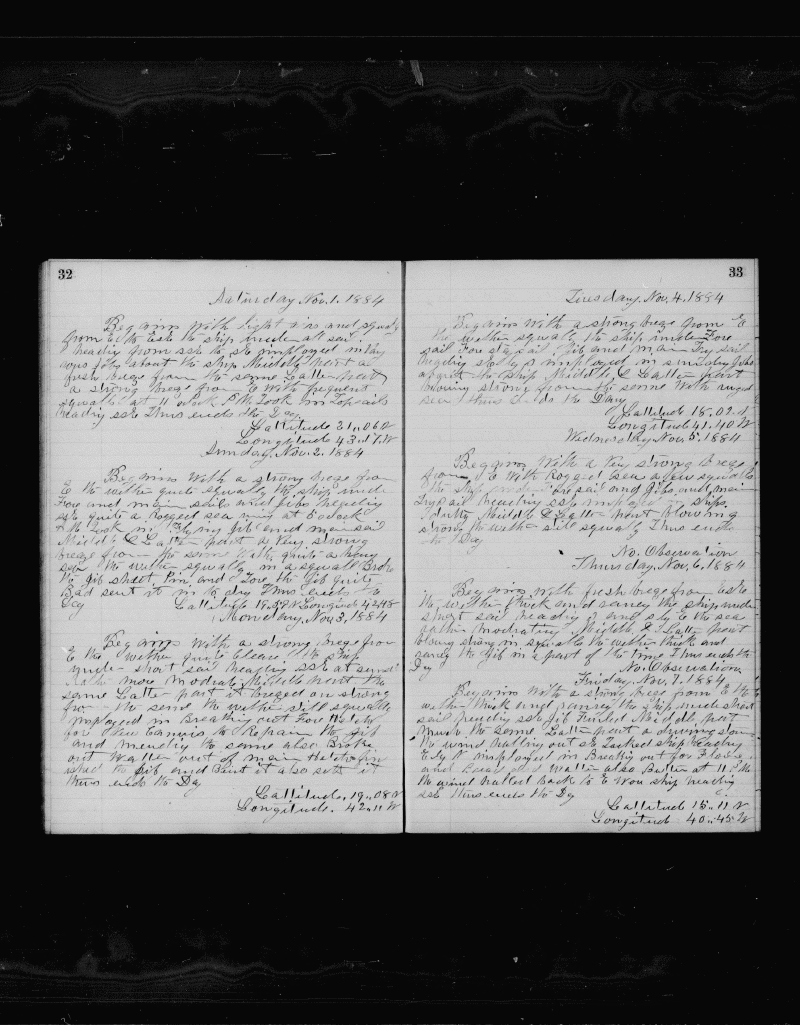 32
Saturday Nov. 1. 1884
Begains With light airs and squalls
from E to Ese the ship under all sail
heading from sse to se imployed in Var
ious jobs about the ship Middle part a
fresh brege from the same Latter part
a strong brege from E with frequent
squalls at 11 oclock P.M. Took in Topsails
heading sse Thus ends the Day
Lattitude 21.06 N
Longitude 43.17 W
Sunday, Nov. 2. 1884
Begains With a strong brege from
E the wether quite squally the ship under
Fore and main sails and jibs heading
sse quite a rogged sea runing at 5 oclock
P.M. Took in Flying jib and main sail
Middle & Latter part a Very strong
brege from the same With quite a heavy
sea the wether squally in a squall Broke
the jib sheet Pin and Tore the jib quite
Bad sent it in to dry Thus ends the
Day Lattitude 19.59 N Longitude 42.48
Monday, Nov. 3, 1884
Begains With a strong brege from
E the wether quite Clear the ship
under short sail heading sse at sunset
more Modrate Middle part the
same Latter part it breged on strong
from the same the wether still squally
imployed in Breaking out Fore Hatch
for New Canvis to Repair the jib
and mending the same also Broke
out Watter out of main Hatch fin
ished the jib and Bent it also sett it
thus ends the Day
Lattitude, 19.08 N
Longitude. 42.11 W
33
Tuesday, Nov. 4. 1884
Begains With a strong brege from E
the wether squally the ship under Fore
sail Fore staysail jib and main Trysail
heading imployed in sundry jobs
about the ship Middle & Latter part
bloing strong from the same With ruged
sea thus ends the Day
Lattitude 18.02 N
Longitude 41.40 W
Wednesday Nov. 5. 1884
Begains With a Very strong brege
from E With Rogged sea a few squalls
the ship under Fore sail and jibs, and main
Trysail heading sse imployed in ships
duty Middle & Latter part blowing
strong the wether still squally Thus ends
the Day
No. Observation
Thursday, Nov. 6, 1884
Begains With fresh brege from Ese
the wether thick and rainey the ship under
short sail heading s and sly E the sea
rather Modrating Middle & Latter part
bloing strong in squalls the wether thick and
rainey the jib in a part of the time Thus ends the
Day No. Observation
Friday, Nov. 7. 1884
Begains With a strong brege from E the
wether thick and rainey the ship under short
sail heading sse jib Furled Middle part
Much the same Latter part a
the wind halling out se Tacked ship heading
imployed in Breaking out for Flour
and Bread and Watter also Butter at 11.
the wind halled back to E Wore ship heading
sse Thus ends the Day
Lattitude 15.11 N
Longitude 40.45 W